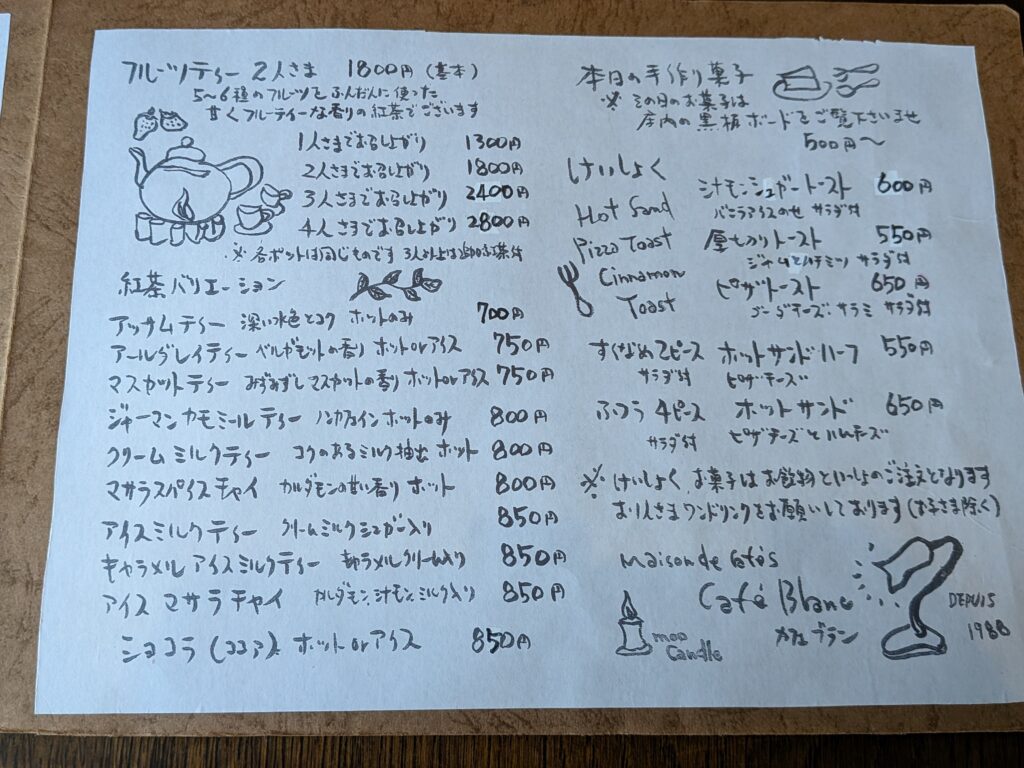 フルーツティー 2人さま 1800円 (基本)
5〜6種のフルーツをふんだんに使った
甘くフルーティーな香りの紅茶でございます
1人さまでお召し上がり 1300円
2人さまでお召し上がり 1800円
3人さまでお召し上がり 2400円
4人さまでお召し上がり 2800円
※各ポットは同じものです 3人以上は追加紅茶付
紅茶バリエーション
アッサムティー 深い水色とコク ホットのみ 700円
アールグレイティー ベルガモットの香り ホットorアイス 750円
マスカットティー みずみずしマスカットの香り ホットorアイス 750円
ジャーマンカモミールティー ノンカフェイン ホットのみ 800円
クリームミルクティー コクのあるミルク抽出 ホット 800円
マサラスパイスチャイ カルダモンの甘い香り ホット 800円
アイスミルクティー クリームミルクシュガー入り 850円
キャラメルアイスミルクティー キャラメルクリーム入り 850円
アイスマサラチャイ カルダモン、シナモン、ミルク入り 850円
ショコラ (ココア) ホットorアイス 850円
本日の手作り菓子
※その日のお菓子は
店内の黒板ボードをご覧下さいませ
500円〜
けいしょく
Hot Sand
Pizza Toast
Cinnamon
Toast
シナモンシュガートースト 600円
バニラアイスのせ サラダ付
厚切りトースト 550円
ジャムとハチミツ サラダ付
ピザトースト 650円
ゴーダチーズ、サラミ サラダ付
すくなめ2ピース ホットサンドハーフ 550円
サラダ付 ピザチーズ
ふつう 4ピース ホットサンド 650円
サラダ付 ピザチーズとハムチーズ
※けいしょく、お菓子はお飲物といっしょのご注文となります
お1人さまワンドリンクをお願いしております(お子さま除く)
Maison de Cafés
Café Blanc
カフェ ブラン
DEPUIS
1988
moo
Candle